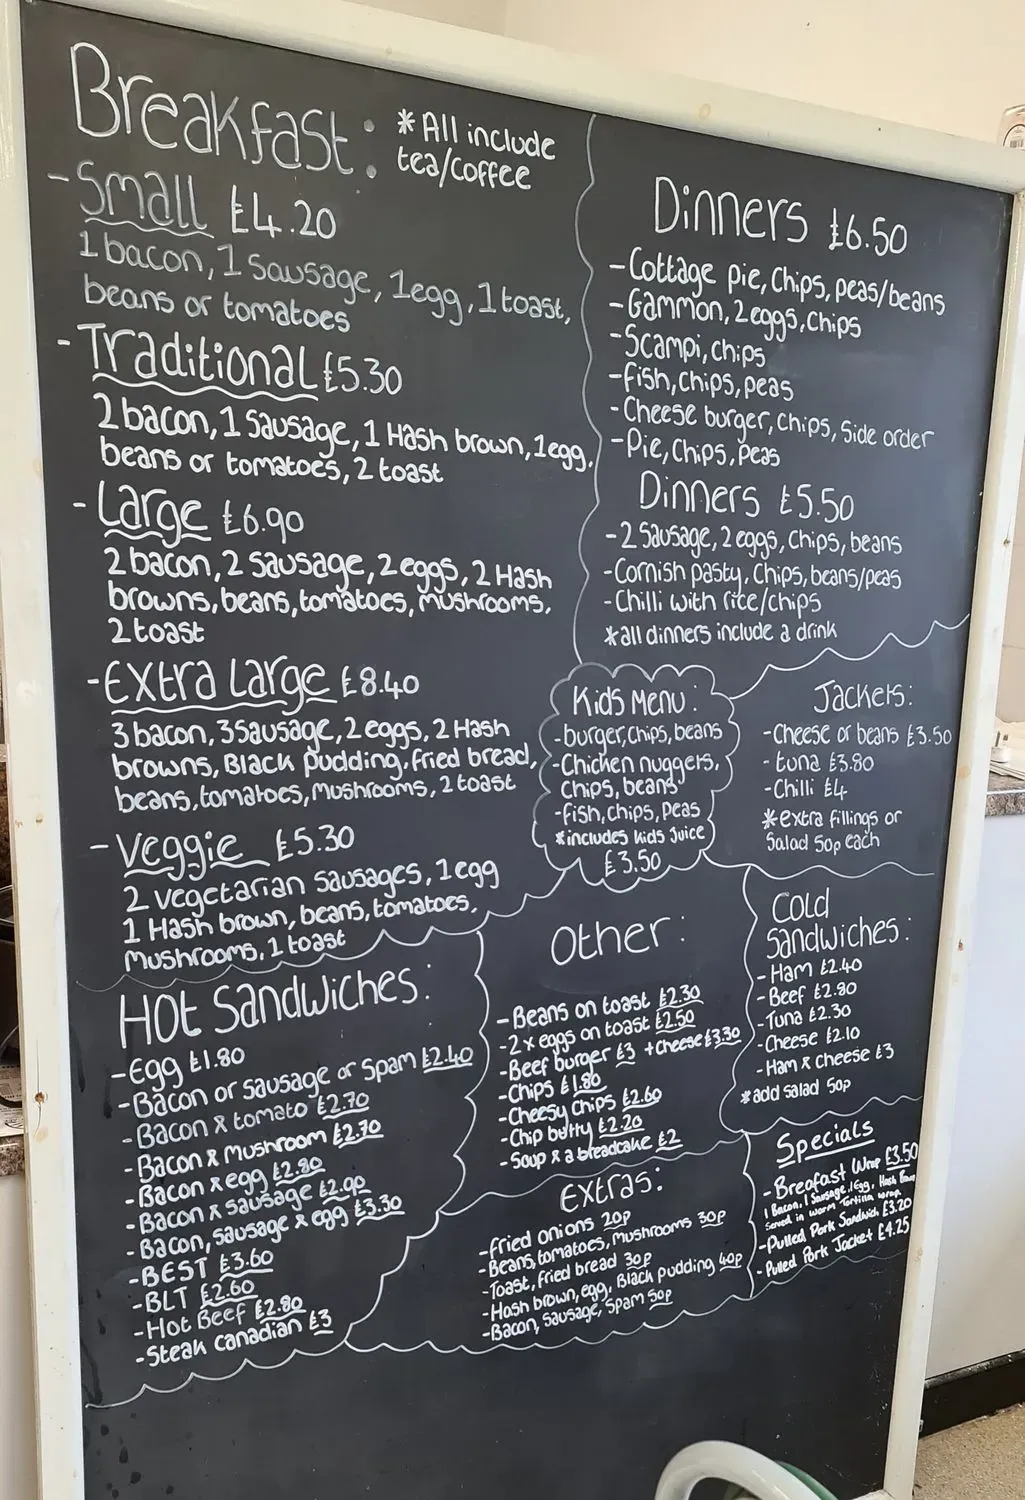 Breakfast:
*All include
tea/coffee
-Small £4.20
1 bacon, 1 sausage, 1 egg, 1 toast,
beans or tomatoes
-Traditional £5.30
2 bacon, 1 sausage, 1 Hash brown, 1 egg,
beans or tomatoes, 2 toast
-Large £6.90
2 bacon, 2 sausage, 2 eggs, 2 Hash
browns, beans, tomatoes, mushrooms,
2 toast
-Extra Large £8.40
3 bacon, 3 sausage, 2 eggs, 2 Hash
browns, Black pudding, fried bread,
beans, tomatoes, mushrooms, 2 toast
-Veggie £5.30
2 vegetarian sausages, 1 egg
1 Hash brown, beans, tomatoes,
Mushrooms, 1 toast
Dinners £6.50
-Cottage pie, chips, peas/beans
-Gammon, 2 eggs, chips
-Scampi, chips
-fish, chips, peas
-Cheese burger, chips, side order
-Pie, chips, peas
Dinners £5.50
-2 Sausage, 2 eggs, chips, beans
-Cornish pasty, chips, beans/peas
-Chilli with rice/chips
*all dinners include a drink
Kids Menu:
-burger, chips, beans
-Chicken nuggets,
chips, beans
-fish, chips, peas
*includes kids juice
£3.50
Jackets:
-Cheese or beans £3.50
-tuna £3.80
-Chilli £4
*extra fillings or
Salad 50p each
Hot Sandwiches:
-Egg £1.80
-Bacon or sausage or spam £2.40
-Bacon & tomato £2.70
-Bacon & mushroom £2.70
-Bacon & egg £2.80
-Bacon & sausage £2.90
-Bacon, sausage & egg £3.30
-BEST £3.60
-BLT £2.60
-Hot Beef £2.80
-Steak canadian £3
Other:
-Beans on toast £2.30
-2 x eggs on toast £2.50
-Beef burger £3 +cheese £3.30
-Chips £1.80
-Cheesy chips £2.60
-Chip butty £2.20
-Soup & a breadcake £2
Extras:
-fried onions 20p
-Beans, tomatoes, Mushrooms 30p
-Toast, fried bread 30p
-Hash brown, egg, Black pudding 40p
-Bacon, sausage, spam 50p
Cold
Sandwiches:
-Ham £2.40
-Beef £2.80
-Tuna £2.30
-Cheese £2.10
-Ham & cheese £3
*add salad 50p
Specials
-Breafast Wrap £3.50
1 Bacon, 1 Sausage, 1 Egg, Hash Brown
Served in warm Tortilla wrap.
-Pulled Pork Sandwich £3.20
-Pulled Pork Jacket £4.25